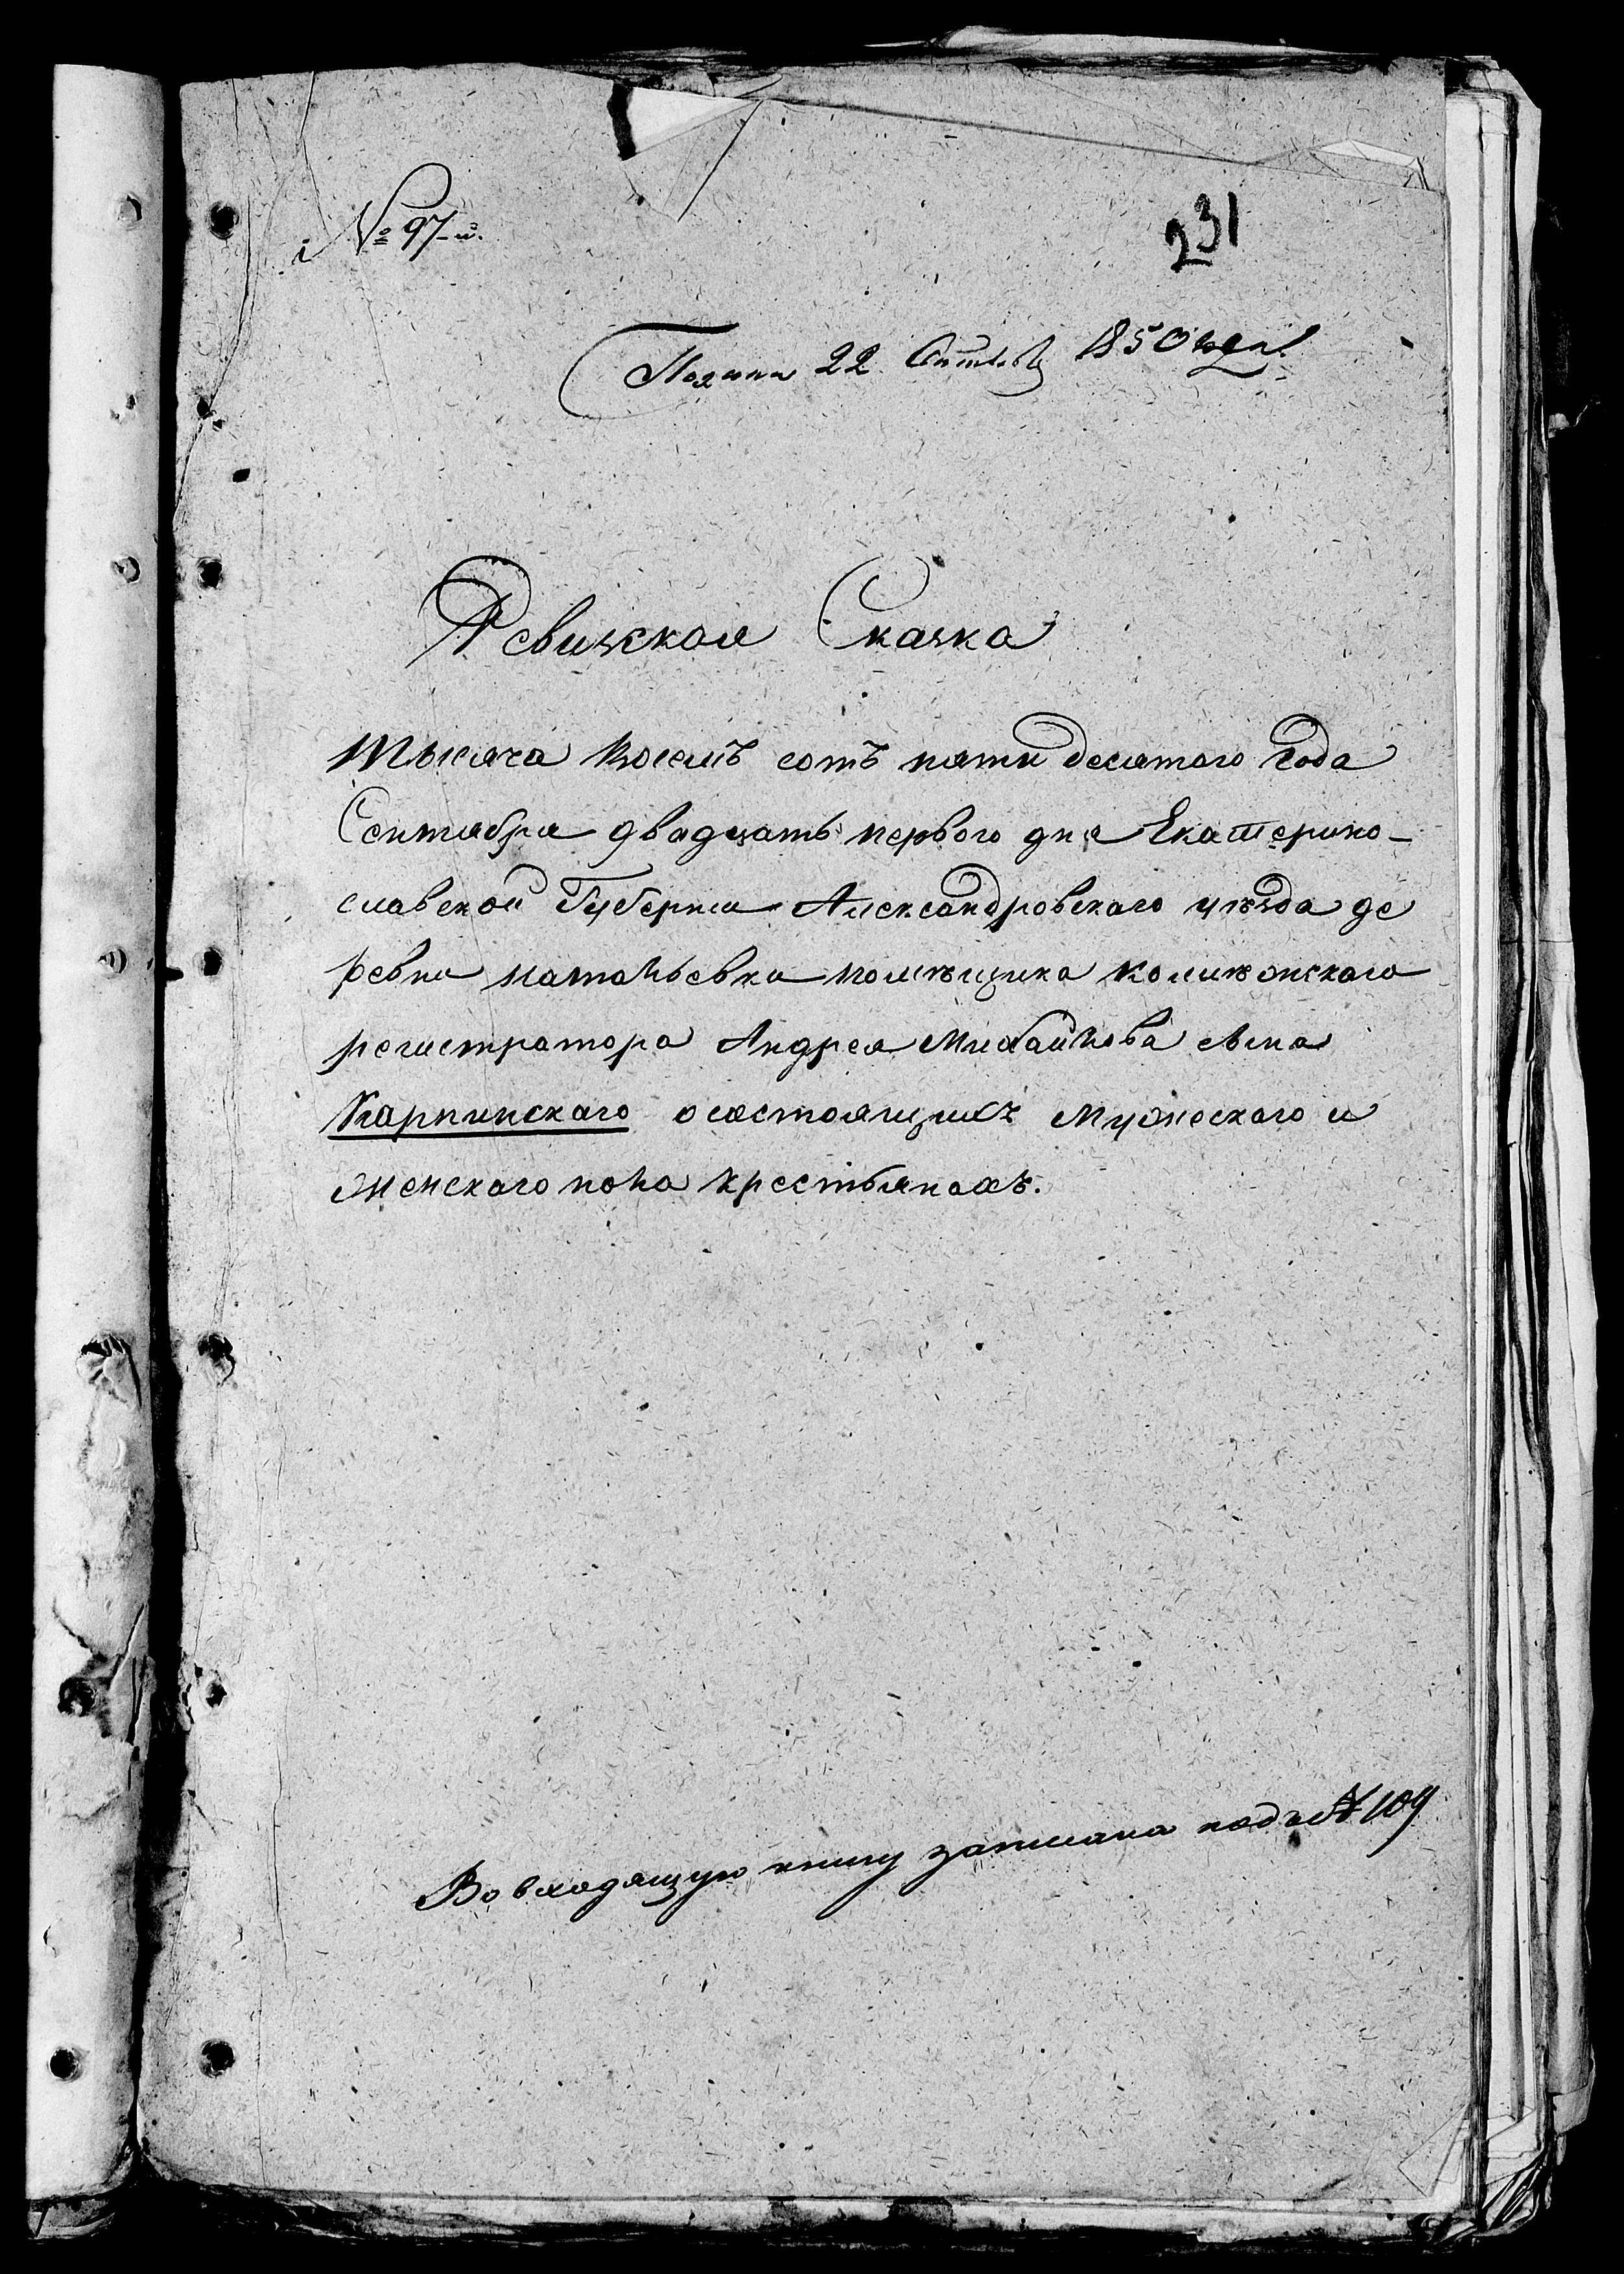 № 97-й.
231
22 1850 года
Ревизская Сказка
Тысяча восемъ сотъ пяти десятого Года
Сентября двадцать первого дня Екатерино-
славской Губернии Александровского уѣзда де
ревни Натальевка помѣщика колиѣжскаго
регистратора Андрея Михайлова сына
Карпинскаго о состоящихъ Мужескаго и
женскаго пола крестьянахъ.
Во входящую книгу записана подъ № 109